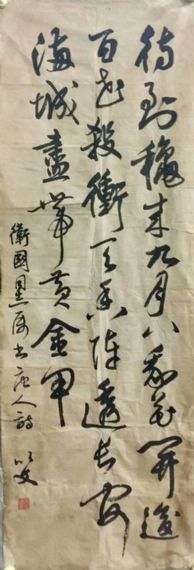 待到龝来九月八我花開後
百花殺衝天香阵透長安
滿城盡帶黄金甲
衛國 書唐人詩